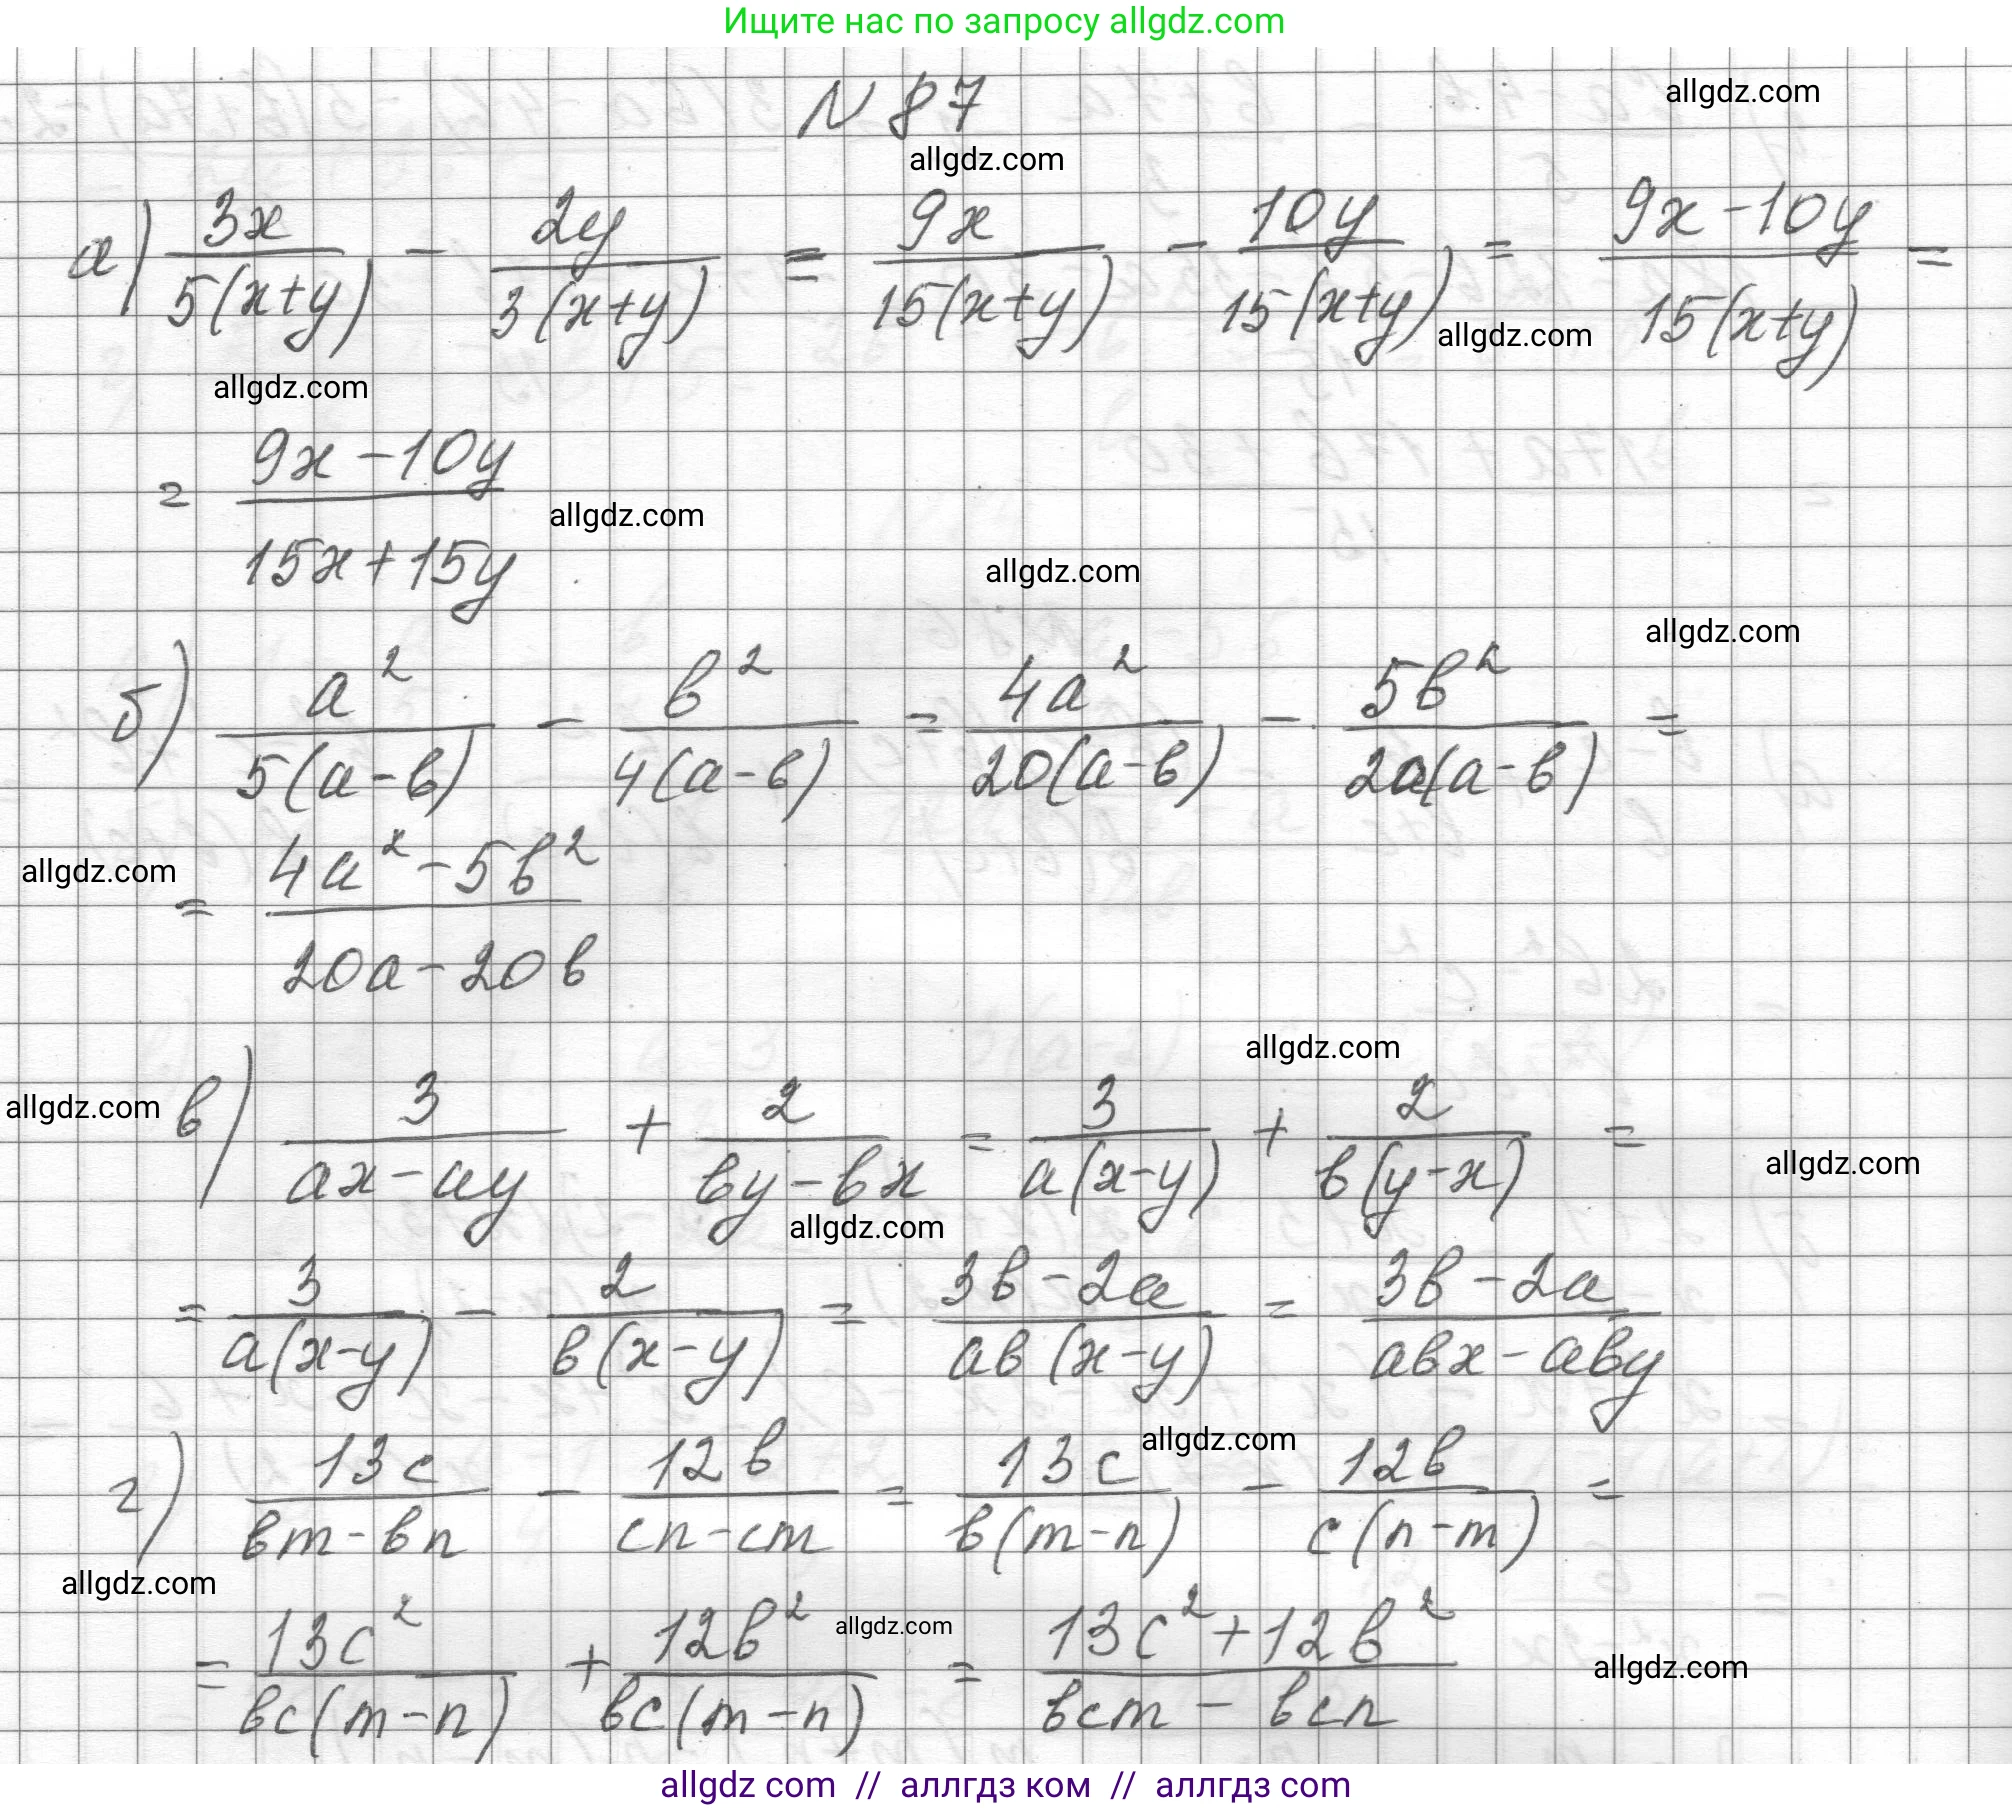 Ищите нас по запросу allgdz.com
allgdz.com
N 87
allgdz.com
а) 3x/(5(x+y)) - 2y/(3(x+y)) = 9x/(15(x+y)) - 10y/(15(x+y)) = (9x-10y)/(15(x+y)) =
allgdz.com
allgdz.com
= (9x-10y)/(15x+15y)
allgdz.com
allgdz.com
allgdz.com
б) a²/(5(a-в)) - в²/(4(a-в)) = 4a²/(20(a-в)) - 5в²/(20(a-в)) =
allgdz.com
= (4a²-5в²)/(20a-20в)
allgdz.com
allgdz.com
в) 3/(ax-ay) + 2/(вy-вx) = 3/(a(x-y)) + 2/(в(y-x)) =
allgdz.com
allgdz.com
= 3/(a(x-y)) - 2/(в(x-y)) = (3в-2a)/(aв(x-y)) = (3в-2a)/(aвx-aвy)
allgdz.com
г) 13c/(вm-вn) - 12в/(cn-cm) = 13c/(в(m-n)) - 12в/(c(n-m)) =
allgdz.com
= 13c²/(вc(m-n)) + 12в²/(вc(m-n)) = (13c²+12в²)/(вcm-вcn)
allgdz.com
allgdz.com
allgdz com // аллгдз ком // аллгдз com